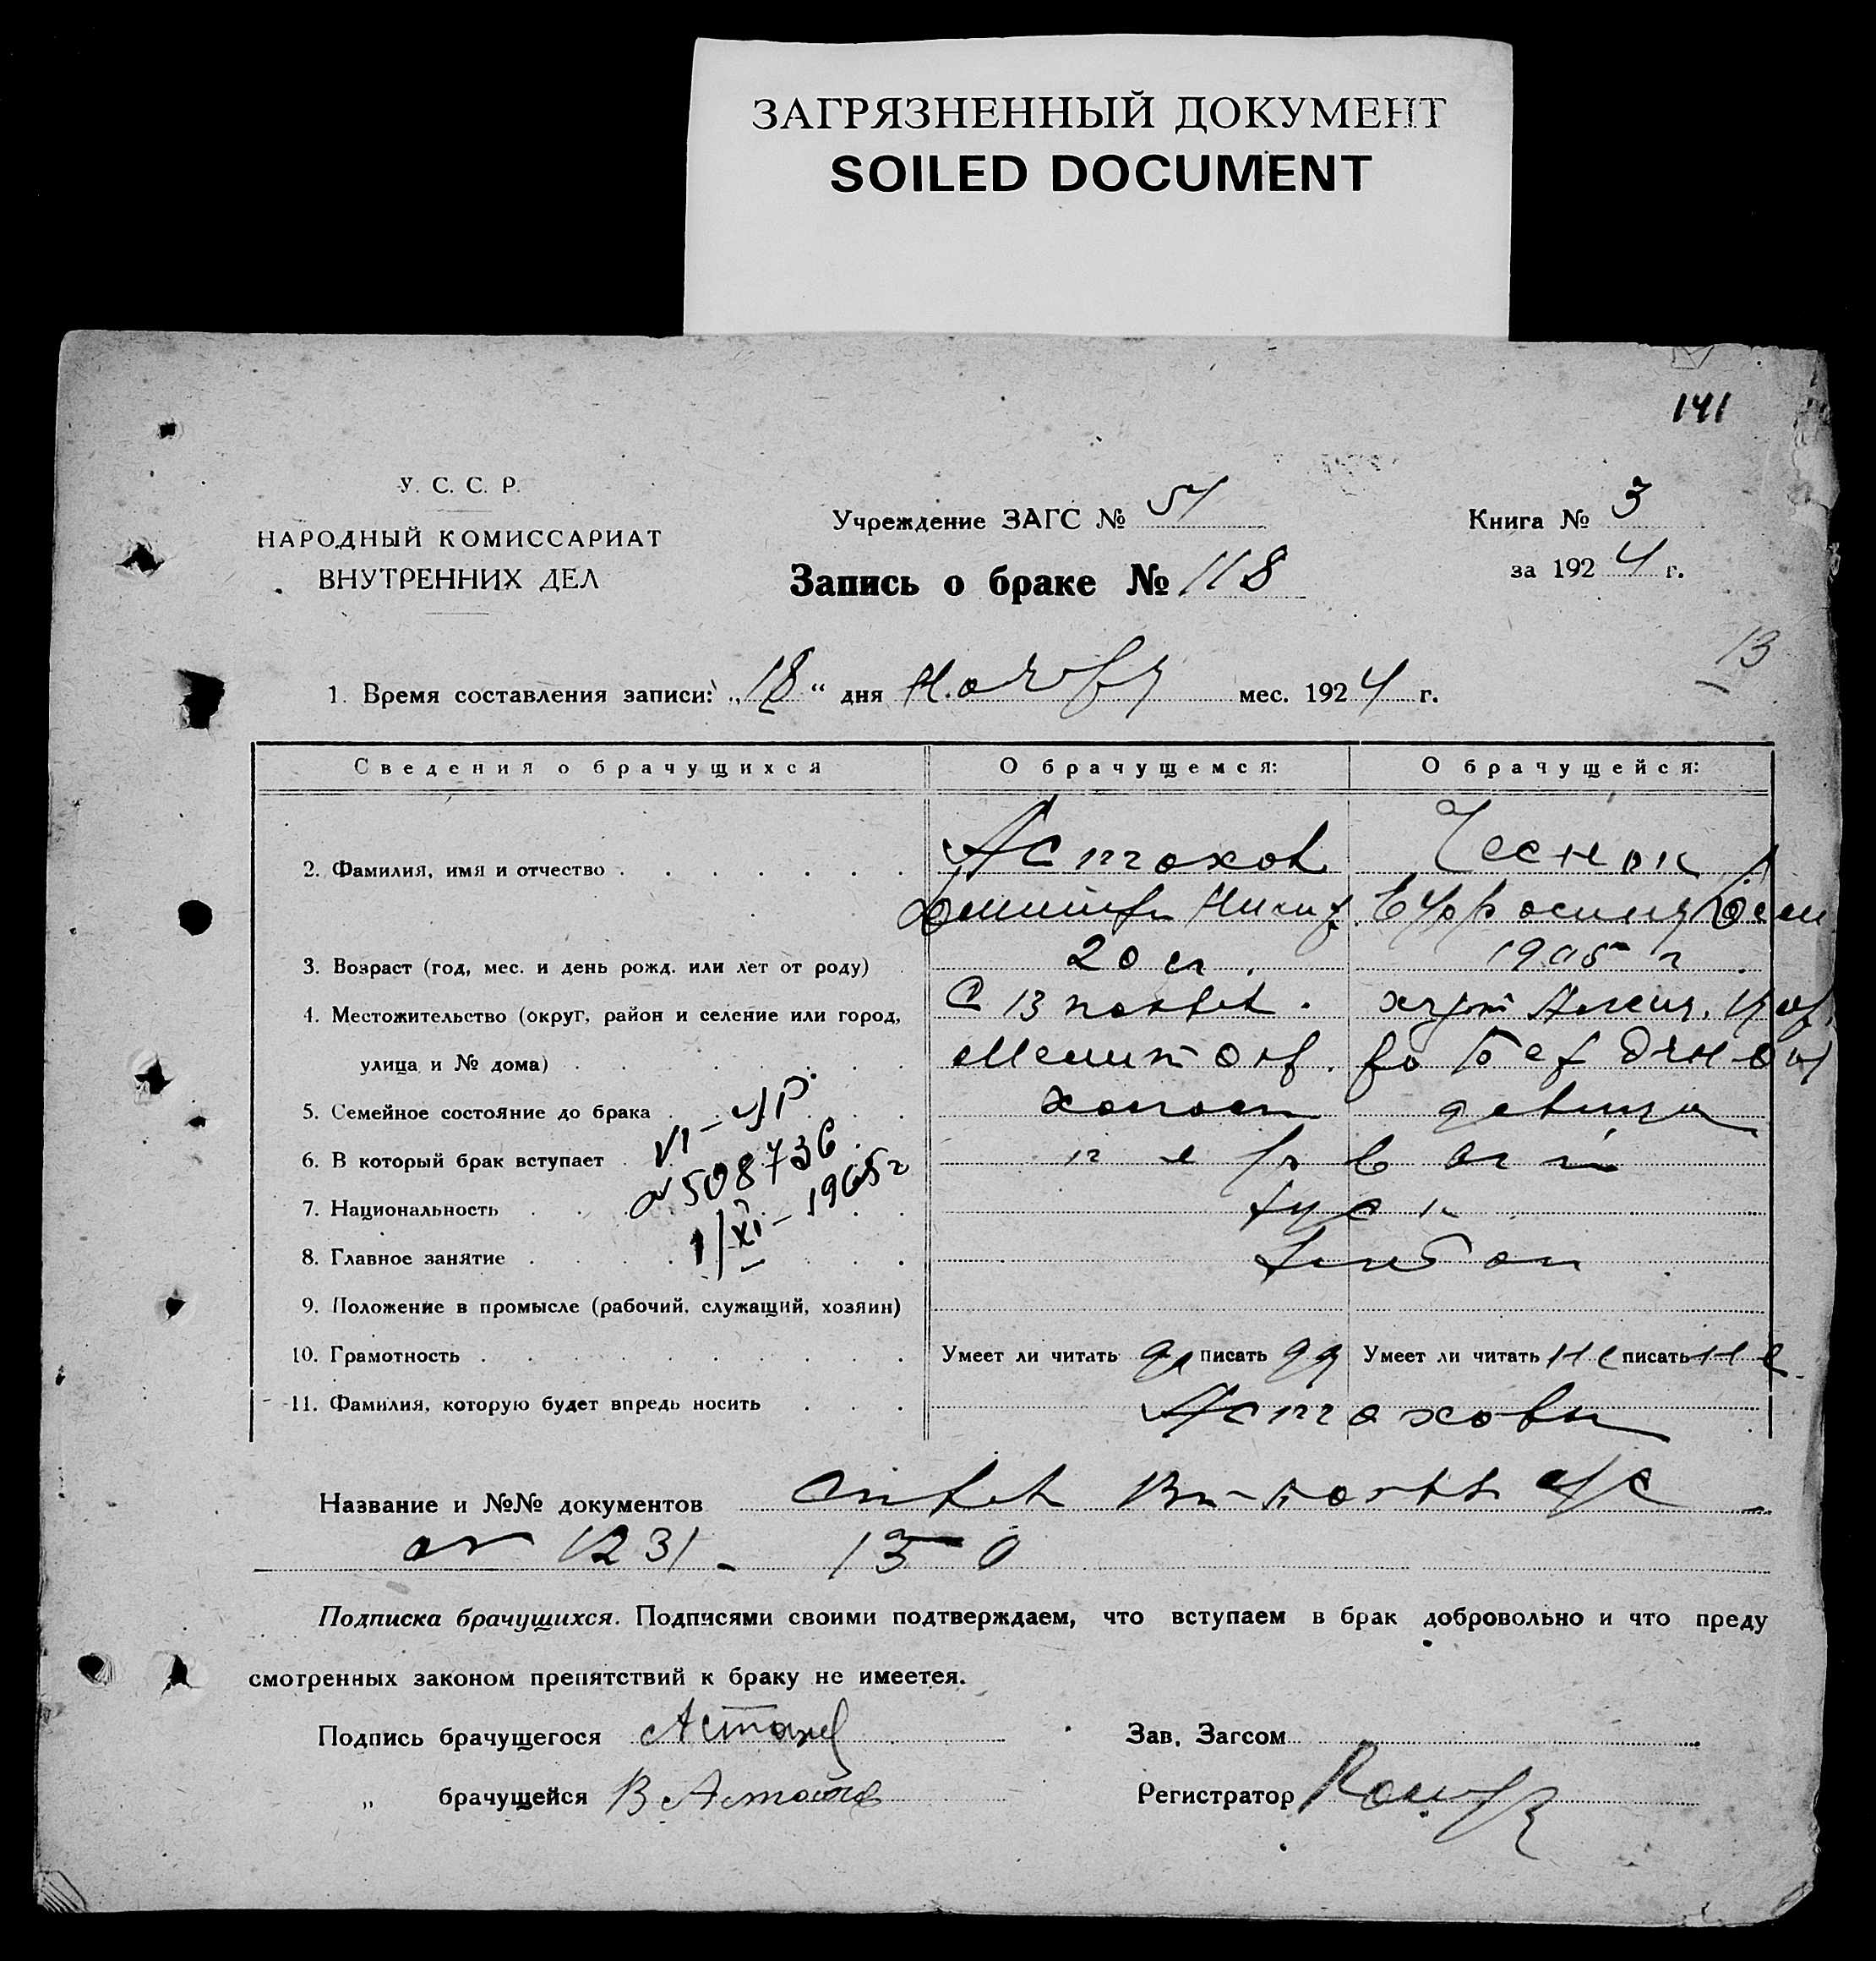 ЗАГРЯЗНЕННЫЙ ДОКУМЕНТ
SOILED DOCUMENT
141
У. С. С. Р.
НАРОДНЫЙ КОМИССАРИАТ
ВНУТРЕННИХ ДЕЛ
Учреждение ЗАГС №
Книга № 3
за 1924 г.
Запись о браке № 118
13
1. Время составления записи: „18“ дня Ноября мес. 1924 г.
Сведения о брачущихся О брачущемся: О брачущейся:
2. Фамилия, имя и отчество Астахов Чеснок
Дмитрий Никиф. Ефросиния
3. Возраст (год, мес. и день рожд. или лет от роду) 20 л. 1905 г.
4. Местожительство (округ, район и селение или город, С 13 хутор
улица и № дома)
5. Семейное состояние до брака холост девица
6. В который брак вступает первый
7. Национальность русск
8. Главное занятие
VI-ЯР
№ 508736
1/XI-1965 г
9. Положение в промысле (рабочий, служащий, хозяин)
10. Грамотность Умеет ли читать да писать да Умеет ли читать не писать не
11. Фамилия, которую будет впредь носить Астаховы
Название и №№ документов
№ 1231 - 150
Подписка брачущихся. Подписями своими подтверждаем, что вступаем в брак добровольно и что преду
смотренных законом препятствий к браку не имеется.
Подпись брачущегося Астахов Зав. Загсом
„ брачущейся В Астахова Регистратор